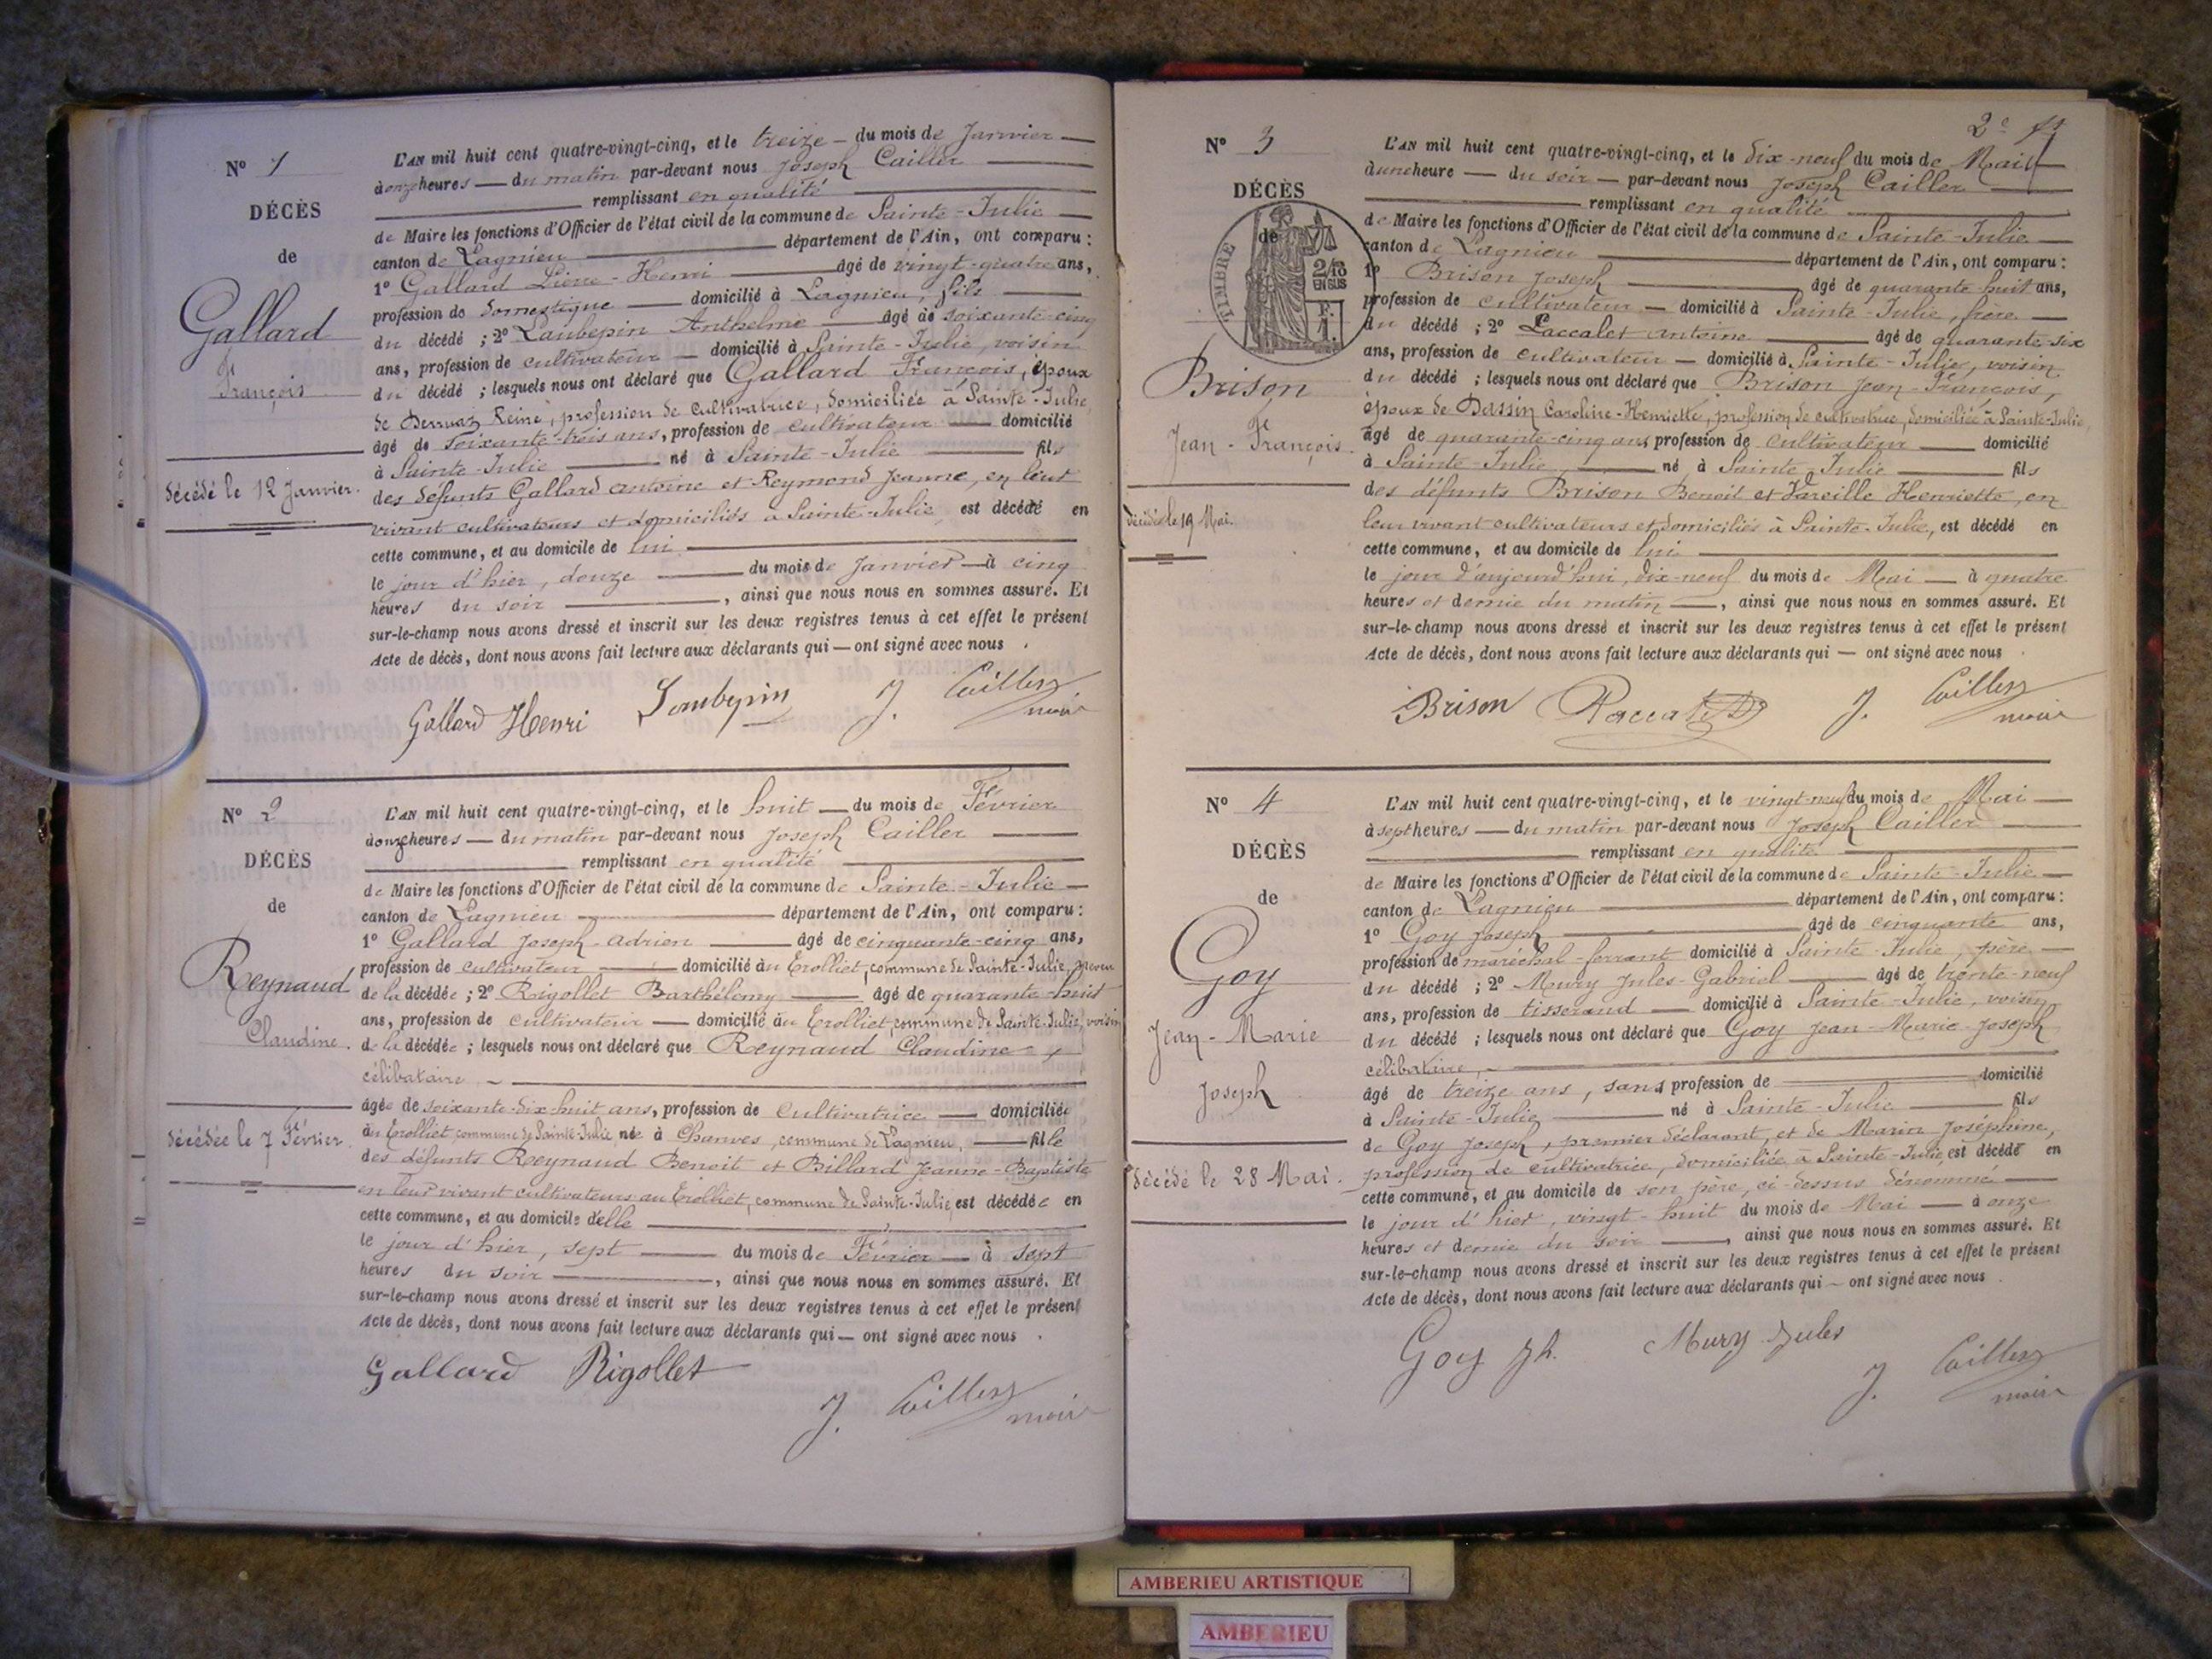 Nº 1
DÉCÈS
de
Gallard
François
décédé le 12 Janvier.
L'AN mil huit cent quatre-vingt-cinq, et le treize du mois de Janvier
à onze heures du matin par-devant nous Joseph Cailler
remplissant en qualité
de Maire les fonctions d'Officier de l'état civil de la commune de Sainte-Julie
canton de Lagnieu département de l'Ain, ont comparu :
1º Gallard Pierre-Henri âgé de vingt-quatre ans,
profession de domestique domicilié à Lagnieu, fils
du décédé ; 2º Laubepin Anthelme âgé de soixante-cinq
ans, profession de cultivateur domicilié à Sainte-Julie, voisin
du décédé ; lesquels nous ont déclaré que Gallard François, époux
de Dervaz Reine, profession de cultivatrice, domiciliée à Sainte-Julie,
âgé de soixante-trois ans, profession de cultivateur domicilié
à Sainte-Julie né à Sainte-Julie fils
des défunts Gallard Antoine et Reymond Jeanne, en leur
vivant cultivateurs et domiciliés à Sainte-Julie est décédé en
cette commune, et au domicile de lui
le jour d'hier, douze du mois de Janvier à cinq
heures du soir , ainsi que nous nous en sommes assuré. Et
sur-le-champ nous avons dressé et inscrit sur les deux registres tenus à cet effet le présent
Acte de décès, dont nous avons fait lecture aux déclarants qui — ont signé avec nous .
Gallard Henri Laubepin J. Cailler
maire
Nº 2
DÉCÈS
de
Reynaud
Claudine.
décédée le 7 Février.
L'AN mil huit cent quatre-vingt-cinq, et le huit du mois de Février
à onze heures du matin par-devant nous Joseph Cailler
remplissant en qualité
de Maire les fonctions d'Officier de l'état civil de la commune de Sainte-Julie
canton de Lagnieu département de l'Ain, ont comparu :
1º Gallard Joseph-Adrien âgé de cinquante-cinq ans,
profession de cultivateur domicilié au Trolliet, commune de Sainte-Julie, neveu
de la décédée ; 2º Rigollet Barthélemy âgé de quarante-huit
ans, profession de cultivateur domicilié au Trolliet, commune de Sainte-Julie, voisin
de la décédée ; lesquels nous ont déclaré que Reynaud Claudine
célibataire
âgée de soixante-dix-huit ans, profession de cultivatrice domiciliée
au Trolliet, commune de Sainte-Julie, née à Charves, commune de Lagnieu, fille
des défunts Reynaud Benoit et Billard Jeanne-Baptiste
en leur vivant cultivateurs au Trolliet, commune de Sainte-Julie, est décédée en
cette commune, et au domicile d'elle
le jour d'hier, sept du mois de Février à sept
heures du soir , ainsi que nous nous en sommes assuré. Et
sur-le-champ nous avons dressé et inscrit sur les deux registres tenus à cet effet le présent
Acte de décès, dont nous avons fait lecture aux déclarants qui — ont signé avec nous .
Gallard Rigollet J. Cailler
maire
2e
Nº 3
DÉCÈS
de
TIMBRE
2/10 EN SUS
F. 1.
Brison
Jean-François.
décédé le 19 Mai.
L'AN mil huit cent quatre-vingt-cinq, et le dix-neuf du mois de Mai
à une heure du soir par-devant nous Joseph Cailler
remplissant en qualité
de Maire les fonctions d'Officier de l'état civil de la commune de Sainte-Julie
canton de Lagnieu département de l'Ain, ont comparu :
1º Brison Joseph âgé de quarante-huit ans,
profession de cultivateur domicilié à Sainte-Julie, frère
du décédé ; 2º Raccalet Antoine âgé de quarante-six
ans, profession de cultivateur domicilié à Sainte-Julie, voisin
du décédé ; lesquels nous ont déclaré que Brison Jean-François,
époux de Dassin Caroline-Henriette, profession de cultivatrice, domiciliée à Sainte-Julie,
âgé de quarante-cinq ans, profession de cultivateur domicilié
à Sainte-Julie, né à Sainte-Julie fils
des défunts Brison Benoit et Vareille Henriette, en
leur vivant cultivateurs et domiciliés à Sainte-Julie, est décédé en
cette commune, et au domicile de lui
le jour d'aujourd'hui, dix-neuf du mois de Mai à quatre
heures et demie du matin , ainsi que nous nous en sommes assuré. Et
sur-le-champ nous avons dressé et inscrit sur les deux registres tenus à cet effet le présent
Acte de décès, dont nous avons fait lecture aux déclarants qui — ont signé avec nous .
Brison Raccalet J. Cailler
maire
Nº 4
DÉCÈS
de
Goy
Jean-Marie
Joseph
décédé le 28 Mai.
L'AN mil huit cent quatre-vingt-cinq, et le vingt-neuf du mois de Mai
à sept heures du matin par-devant nous Joseph Cailler
remplissant en qualité
de Maire les fonctions d'Officier de l'état civil de la commune de Sainte-Julie
canton de Lagnieu département de l'Ain, ont comparu :
1º Goy Joseph âgé de cinquante ans,
profession de maréchal-ferrant domicilié à Sainte-Julie, père
du décédé ; 2º Mury Jules-Gabriel âgé de trente-neuf
ans, profession de tisserand domicilié à Sainte-Julie, voisin
du décédé ; lesquels nous ont déclaré que Goy Jean-Marie-Joseph
célibataire,
âgé de treize ans, sans profession de domicilié
à Sainte-Julie né à Sainte-Julie fils
de Goy Joseph, premier déclarant, et de Marin Joséphine,
profession de cultivatrice, domiciliée à Sainte-Julie, est décédé en
cette commune, et au domicile de son père, ci-dessus dénommé
le jour d'hier, vingt-huit du mois de Mai à onze
heures et demie du soir , ainsi que nous nous en sommes assuré. Et
sur-le-champ nous avons dressé et inscrit sur les deux registres tenus à cet effet le présent
Acte de décès, dont nous avons fait lecture aux déclarants qui — ont signé avec nous .
Goy Jh. Mury Jules J. Cailler
maire
AMBERIEU ARTISTIQUE
AMBERIEU